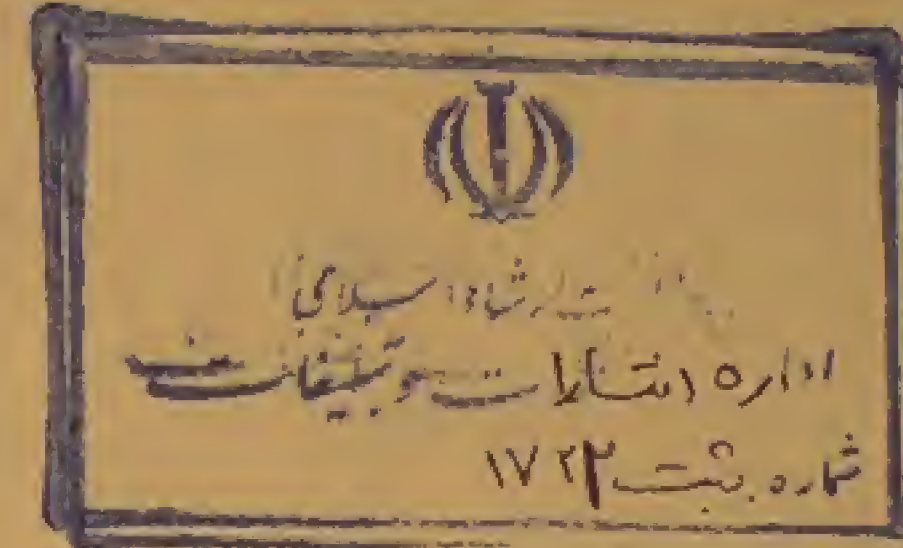 ارشاد اسلامی
اداره انتشارات و تبلیغات
شماره ثبت ۱۷۲۲